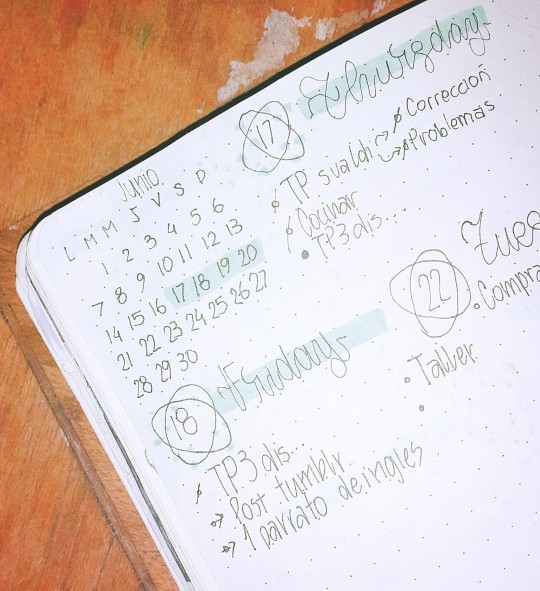 Junio
L M M J V S D
1 2 3 4 5 6
7 8 9 10 11 12 13
14 15 16 17 18 19 20
21 22 23 24 25 26 27
28 29 30
17 Thursday
TP svaldi → Corrección
→ Problemas
Cocinar
TP3 dis...
18 Friday
TP3 dis...
Post tumblr
1 parrafo de ingles
22
Compra
Taller